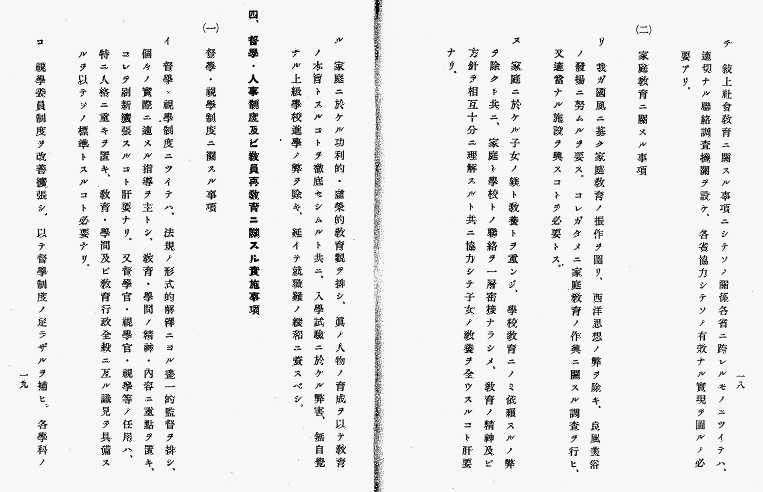 チ 敍上社會教育ニ關スル事項ニシテソノ關係各省ニ跨レルモノニツイテハ、
適切ナル聯絡調査機關ヲ設ケ、各省協力シテソノ有效ナル實現ヲ圖ルノ必
要アリ。
(二) 家庭教育ニ關スル事項
リ 我ガ國風ニ基ク家庭教育ノ振作ヲ圖リ、西洋思想ノ弊ヲ除キ、良風美俗
ノ發揚ニ努ムルヲ要ス。コレガタメニ家庭教育ノ作興ニ關スル調査ヲ行ヒ、
又適當ナル施設ヲ興スコトヲ必要トス。
ヌ 家庭ニ於ケル子女ノ躾ト教養トヲ重ンジ、學校教育ニノミ依賴スルノ弊
ヲ除クト共ニ、家庭ト學校トノ聯絡ヲ一層密接ナラシメ、教育ノ精神及ビ
方針ヲ相互十分ニ理解スルト共ニ協力シテ子女ノ教養ヲ全ウスルコト肝要
ナリ。
一八
ル 家庭ニ於ケル功利的・虛榮的教育觀ヲ排シ、眞ノ人物ノ育成ヲ以テ教育
ノ本旨トスルコトヲ徹底セシムルト共ニ、入學試驗ニ於ケル弊害、無自覺
ナル上級學校進學ノ弊ヲ除キ、延イテ就職難ノ緩和ニ資スベシ。
四、督學・人事制度及ビ教員再教育ニ關スル實施事項
(一) 督學・視學制度ニ關スル事項
イ 督學・視學制度ニツイテハ、法規ノ形式的解釋ニヨル畫一的監督ヲ排シ、
個々ノ實際ニ適スル指導ヲ主トシ、教育・學問ノ精神・內容ニ重點ヲ置キ、
コレヲ刷新擴張スルコト肝要ナリ。又督學官・視學官・視學等ノ任用ハ、
特ニ人格ニ重キヲ置キ、教育・學問及ビ教育行政全般ニ亙ル識見ヲ具備ス
ルヲ以テソノ標準トスルコト必要ナリ。
ロ 視學委員制度ヲ改善擴張シ、以テ督學制度ノ足ラザルヲ補ヒ、各學科ノ
一九